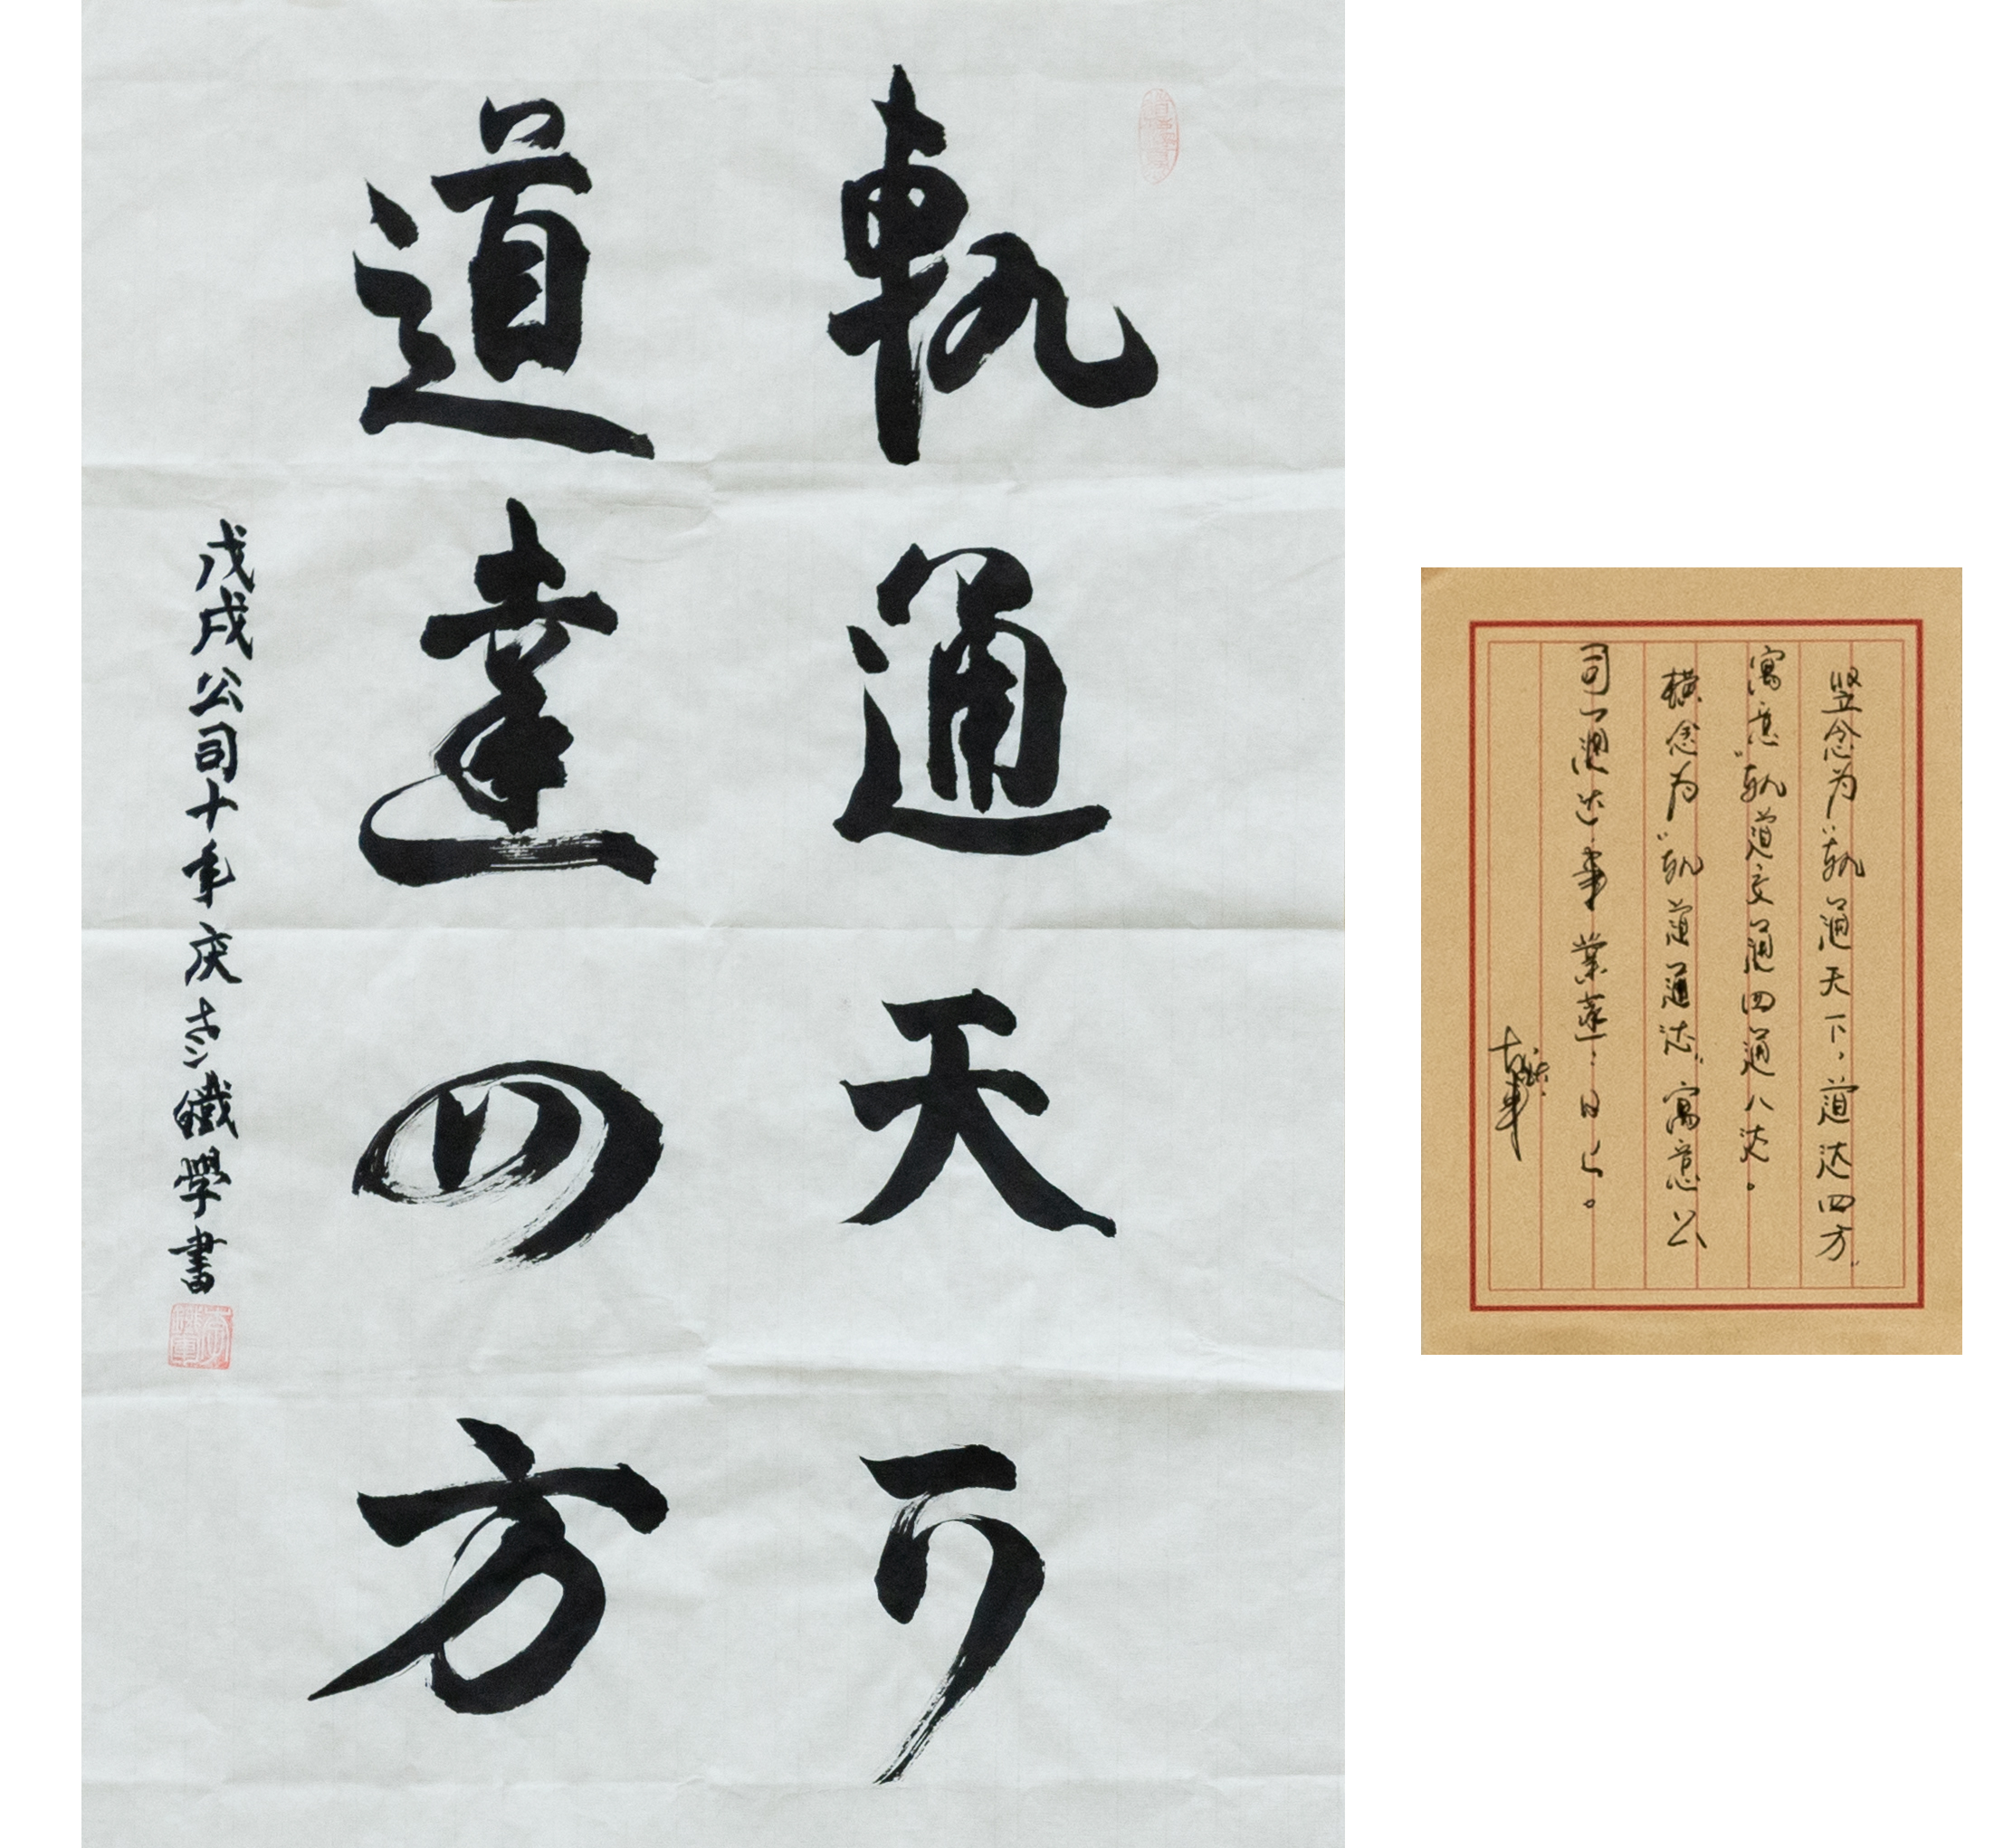 軌通天下
道達四方
戊戌公司十年庆
鐵學書
竖念为“轨通天下，道达四方”
寓意“轨道交通四通八达。
横念为“轨道通达”寓意公
司通达事业蒸蒸日上。